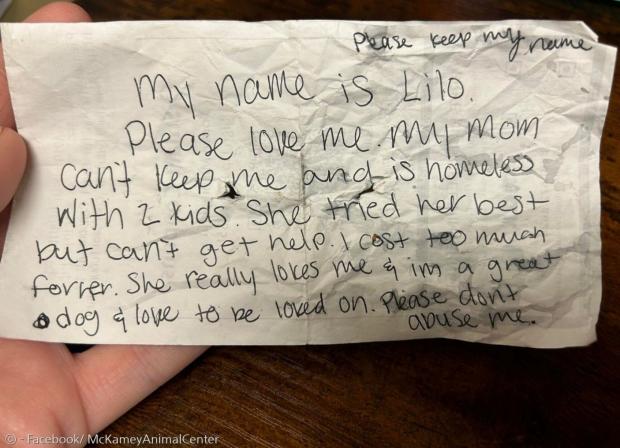 Please keep my name
My name is Lilo.
Please love me. My mom
can't keep me and is homeless
with 2 kids. She tried her best
but can't get help. I cost too much
for her. She really loves me & im a great
dog & love to be loved on. Please don't
abuse me.
© - Facebook/ McKameyAnimalCenter